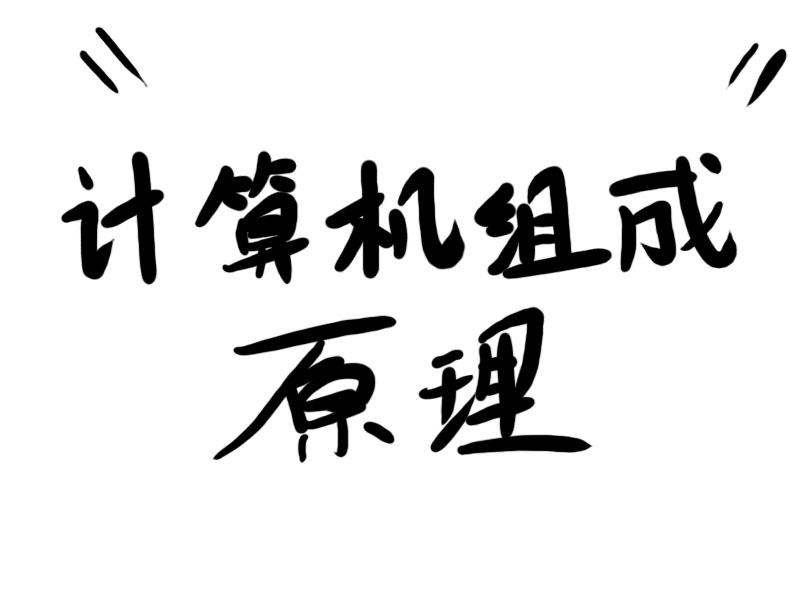 计算机组成
原理